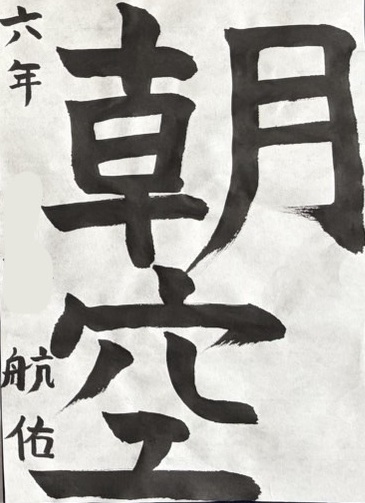 朝空
六年
航佑